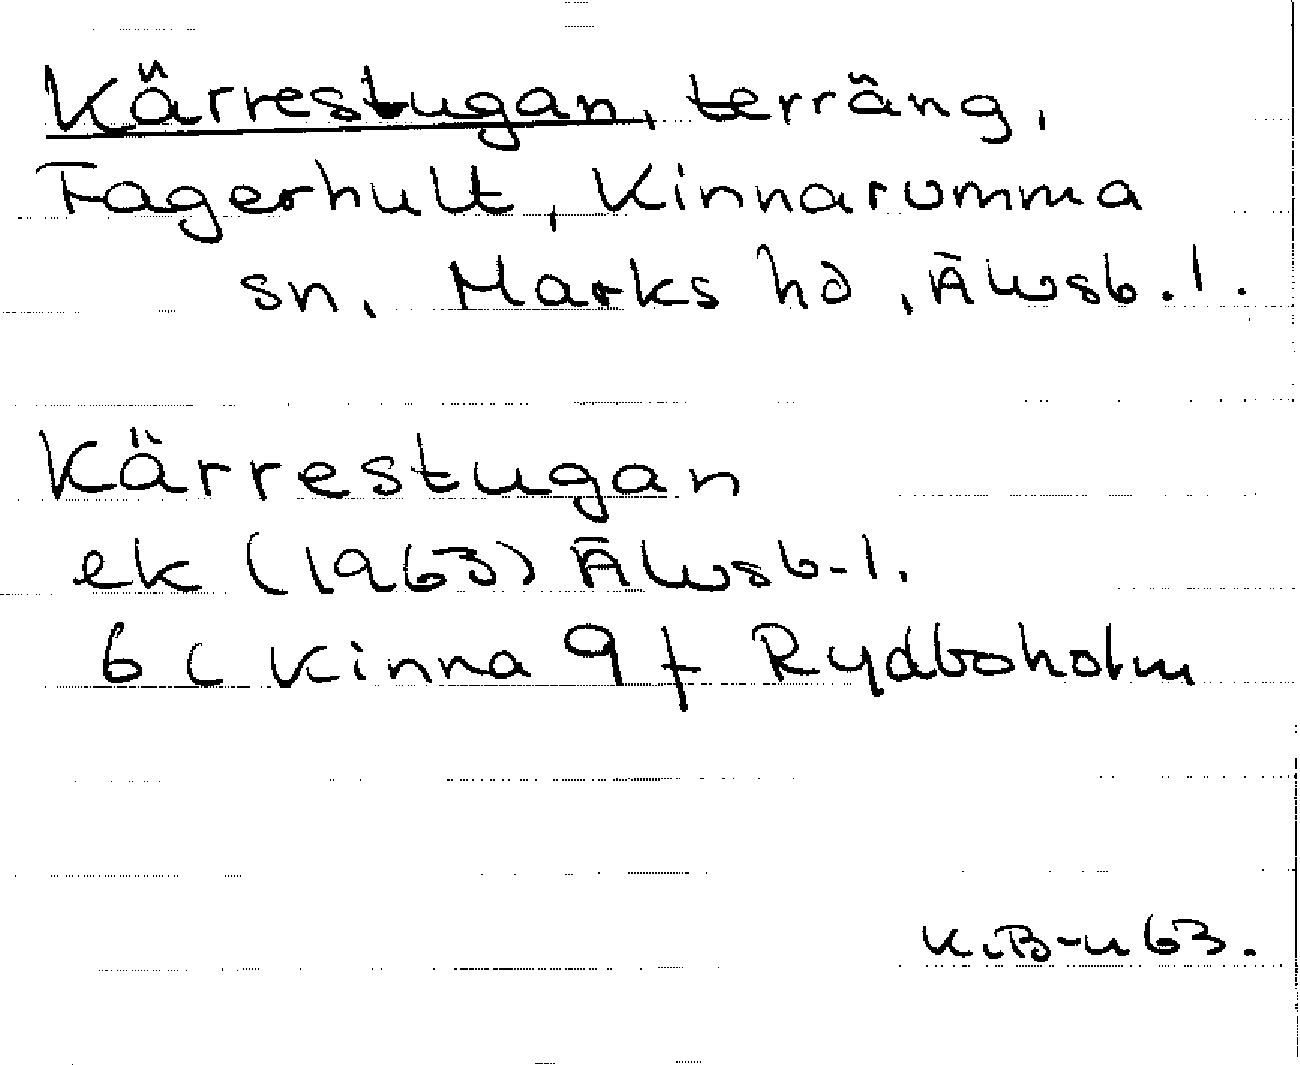 Kärrestugan, terräng,
Fagerhult, Kinnarumma
sn, Marks hd, Älvsb. l.
Kärrestugan
ek (1963) Älvsb-l.
6 C Kinna 9 f Rydboholm
K.B-n 63.